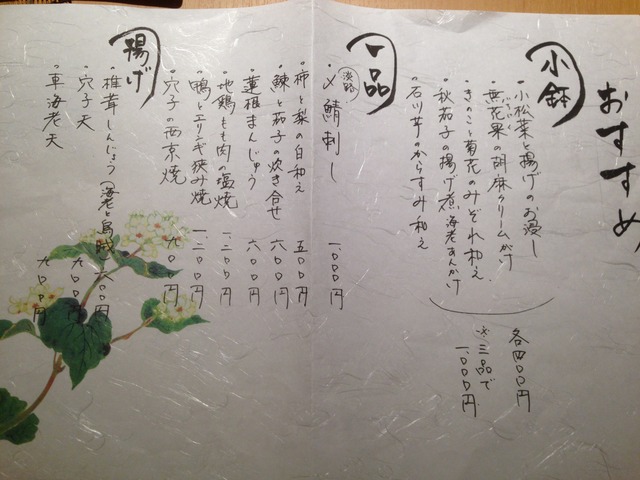 おすすめ
小鉢
・小松菜と揚げのお浸し
・無花果の胡麻クリームがけ
いちじく
・きのこと菊花のみぞれ和え
・秋茄子の揚げ煮 海老あんかけ
・石川芋のからすみ和え
各四〇〇円
※三品で
一、〇〇〇円
一品
・淡路 〆鯖刺し 一、〇〇〇円
・柿と梨の白和え 五〇〇円
・鰊と茄子の炊き合せ 六〇〇円
・蓮根まんじゅう 六〇〇円
・地鶏もも肉の塩焼 一、二〇〇円
・鴨とエリンギ挟み焼 一、二〇〇円
・穴子の西京焼 九〇〇円
揚げ
・椎茸しんじょう(海老と烏賊) 六〇〇円
・穴子天 九〇〇円
・車海老天 九〇〇円